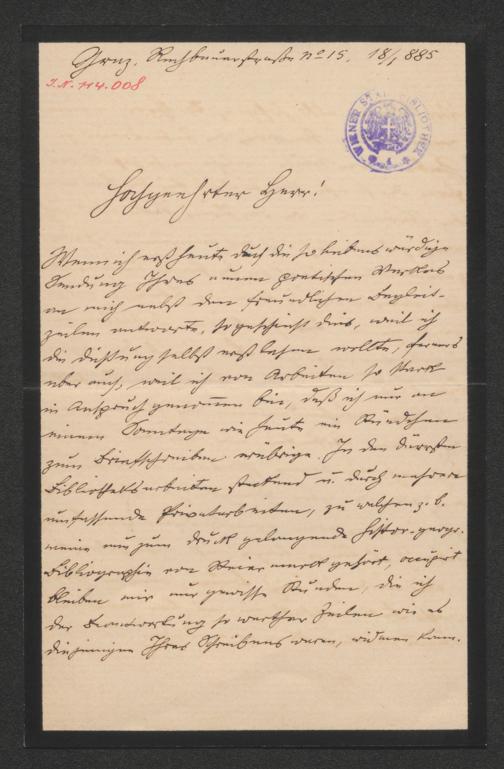 Graz. Rechbauerstraße No 15. 18/1 885
I.N. 114.008
WIENER STADTBIBLIOTHEK
Hochgeehrter Herr!
Wenn ich erst heute durch die so liebenswürdige
Sendung Ihres neuen poetischen Werkes
an mich nebst den freundlichen Begleit-
zeilen antworte, so geschieht dies, weil ich
die Dichtung selbst erst lesen wollte, ferners
aber auch, weil ich von Arbeiten so stark
in Anspruch genommen bin, daß ich nur an
einem Sonntage wie heute ein Stündchen
zum Briefschreiben erübrige. In den dürren
Bibliotheksarbeiten steckend u. durch mehrere
umfassende Privatarbeiten, zu welchen z. B.
meine nun zum Druck gelangende histor.-geogr.
Bibliographie von Steiermark gehört, occupirt
bleiben mir nur gewisse Stunden, die ich
der Beantwortung so werther Zeilen wie es
diejenigen Ihres Schreibens waren, widmen kann.